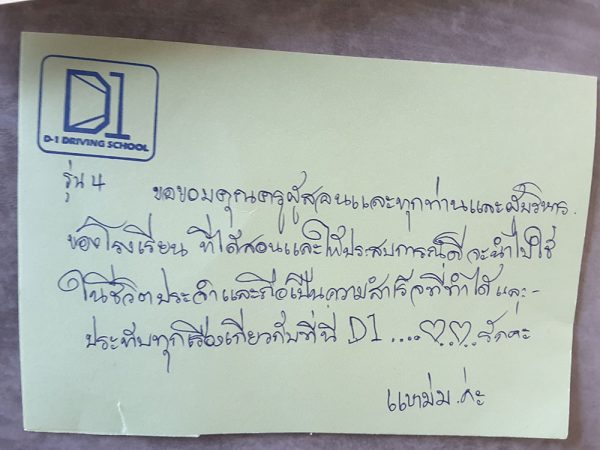 D1
D-1 DRIVING SCHOOL
รุ่น 4 ขอขอบคุณครูผู้สอนและทุกท่านและผู้บริหาร
ของโรงเรียน ที่ได้สอนและให้ประสบการณ์ดี จะนำไปใช้
ในชีวิตประจำและถือเป็นความสำเร็จที่ทำได้ และ-
ประทับทุกเรื่องเกี่ยวกับที่นี่ D1 .... รักค่ะ
แหม่ม ค่ะ